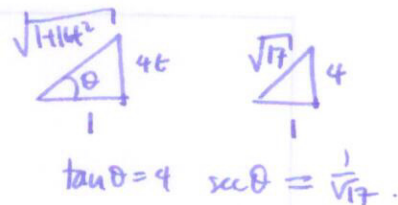 √1+16t² 4t √17 4
θ
1 1
tanθ = 4 secθ = 1/√17.